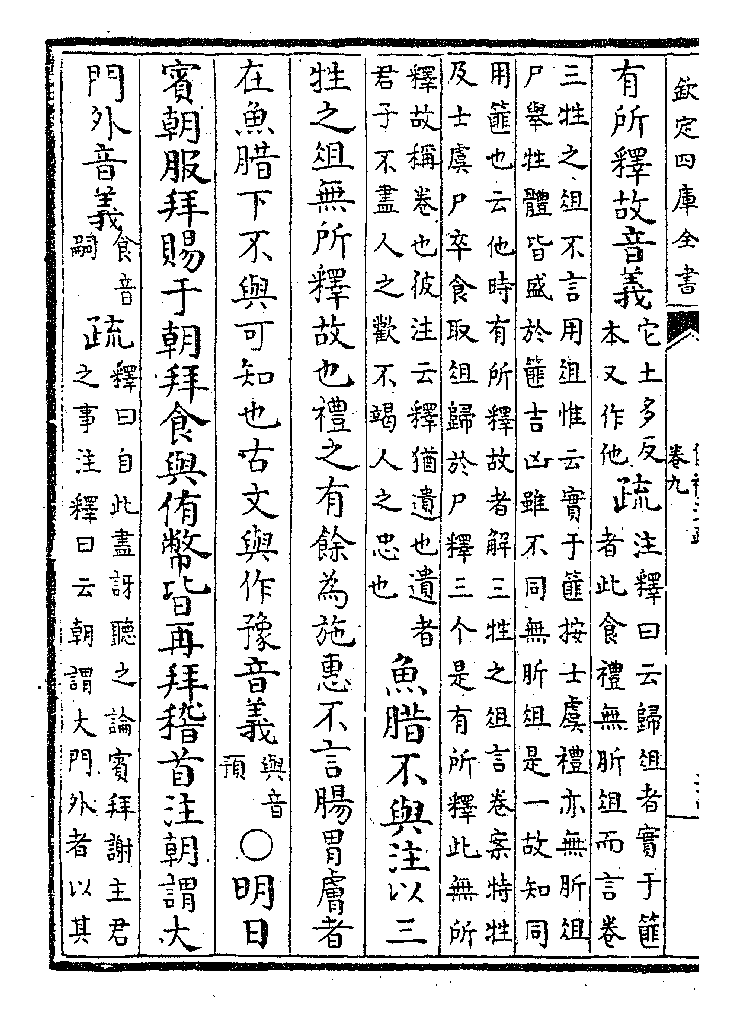 欽定四庫全書
卷九
有所釋故音義
它土多反
本又作他
疏
注釋曰云歸俎者實于篚
者此食禮無肵俎而言卷
三牲之俎不言用俎惟云實于篚按士虞禮亦無肵俎
尸舉牲體皆盛於篚吉凶雖不同無肵俎是一故知同
用篚也云他時有所釋故者解三牲之俎言卷案特牲
及士虞尸卒食取俎歸於尸釋三个是有所釋此無所
釋故稱卷也彼注云釋猶遺也遺者
君子不盡人之歡不竭人之忠也
魚腊不與注以三
牲之俎無所釋故也禮之有餘為施惠不言腸胃膚者
在魚腊下不與可知也古文與作豫音義
與音
預
○明日
賓朝服拜賜于朝拜食與侑幣皆再拜稽首注朝謂大
門外音義
食音
嗣
疏
釋曰自此盡訝聽之論賓拜謝主君
之事注釋曰云朝謂大門外者以其